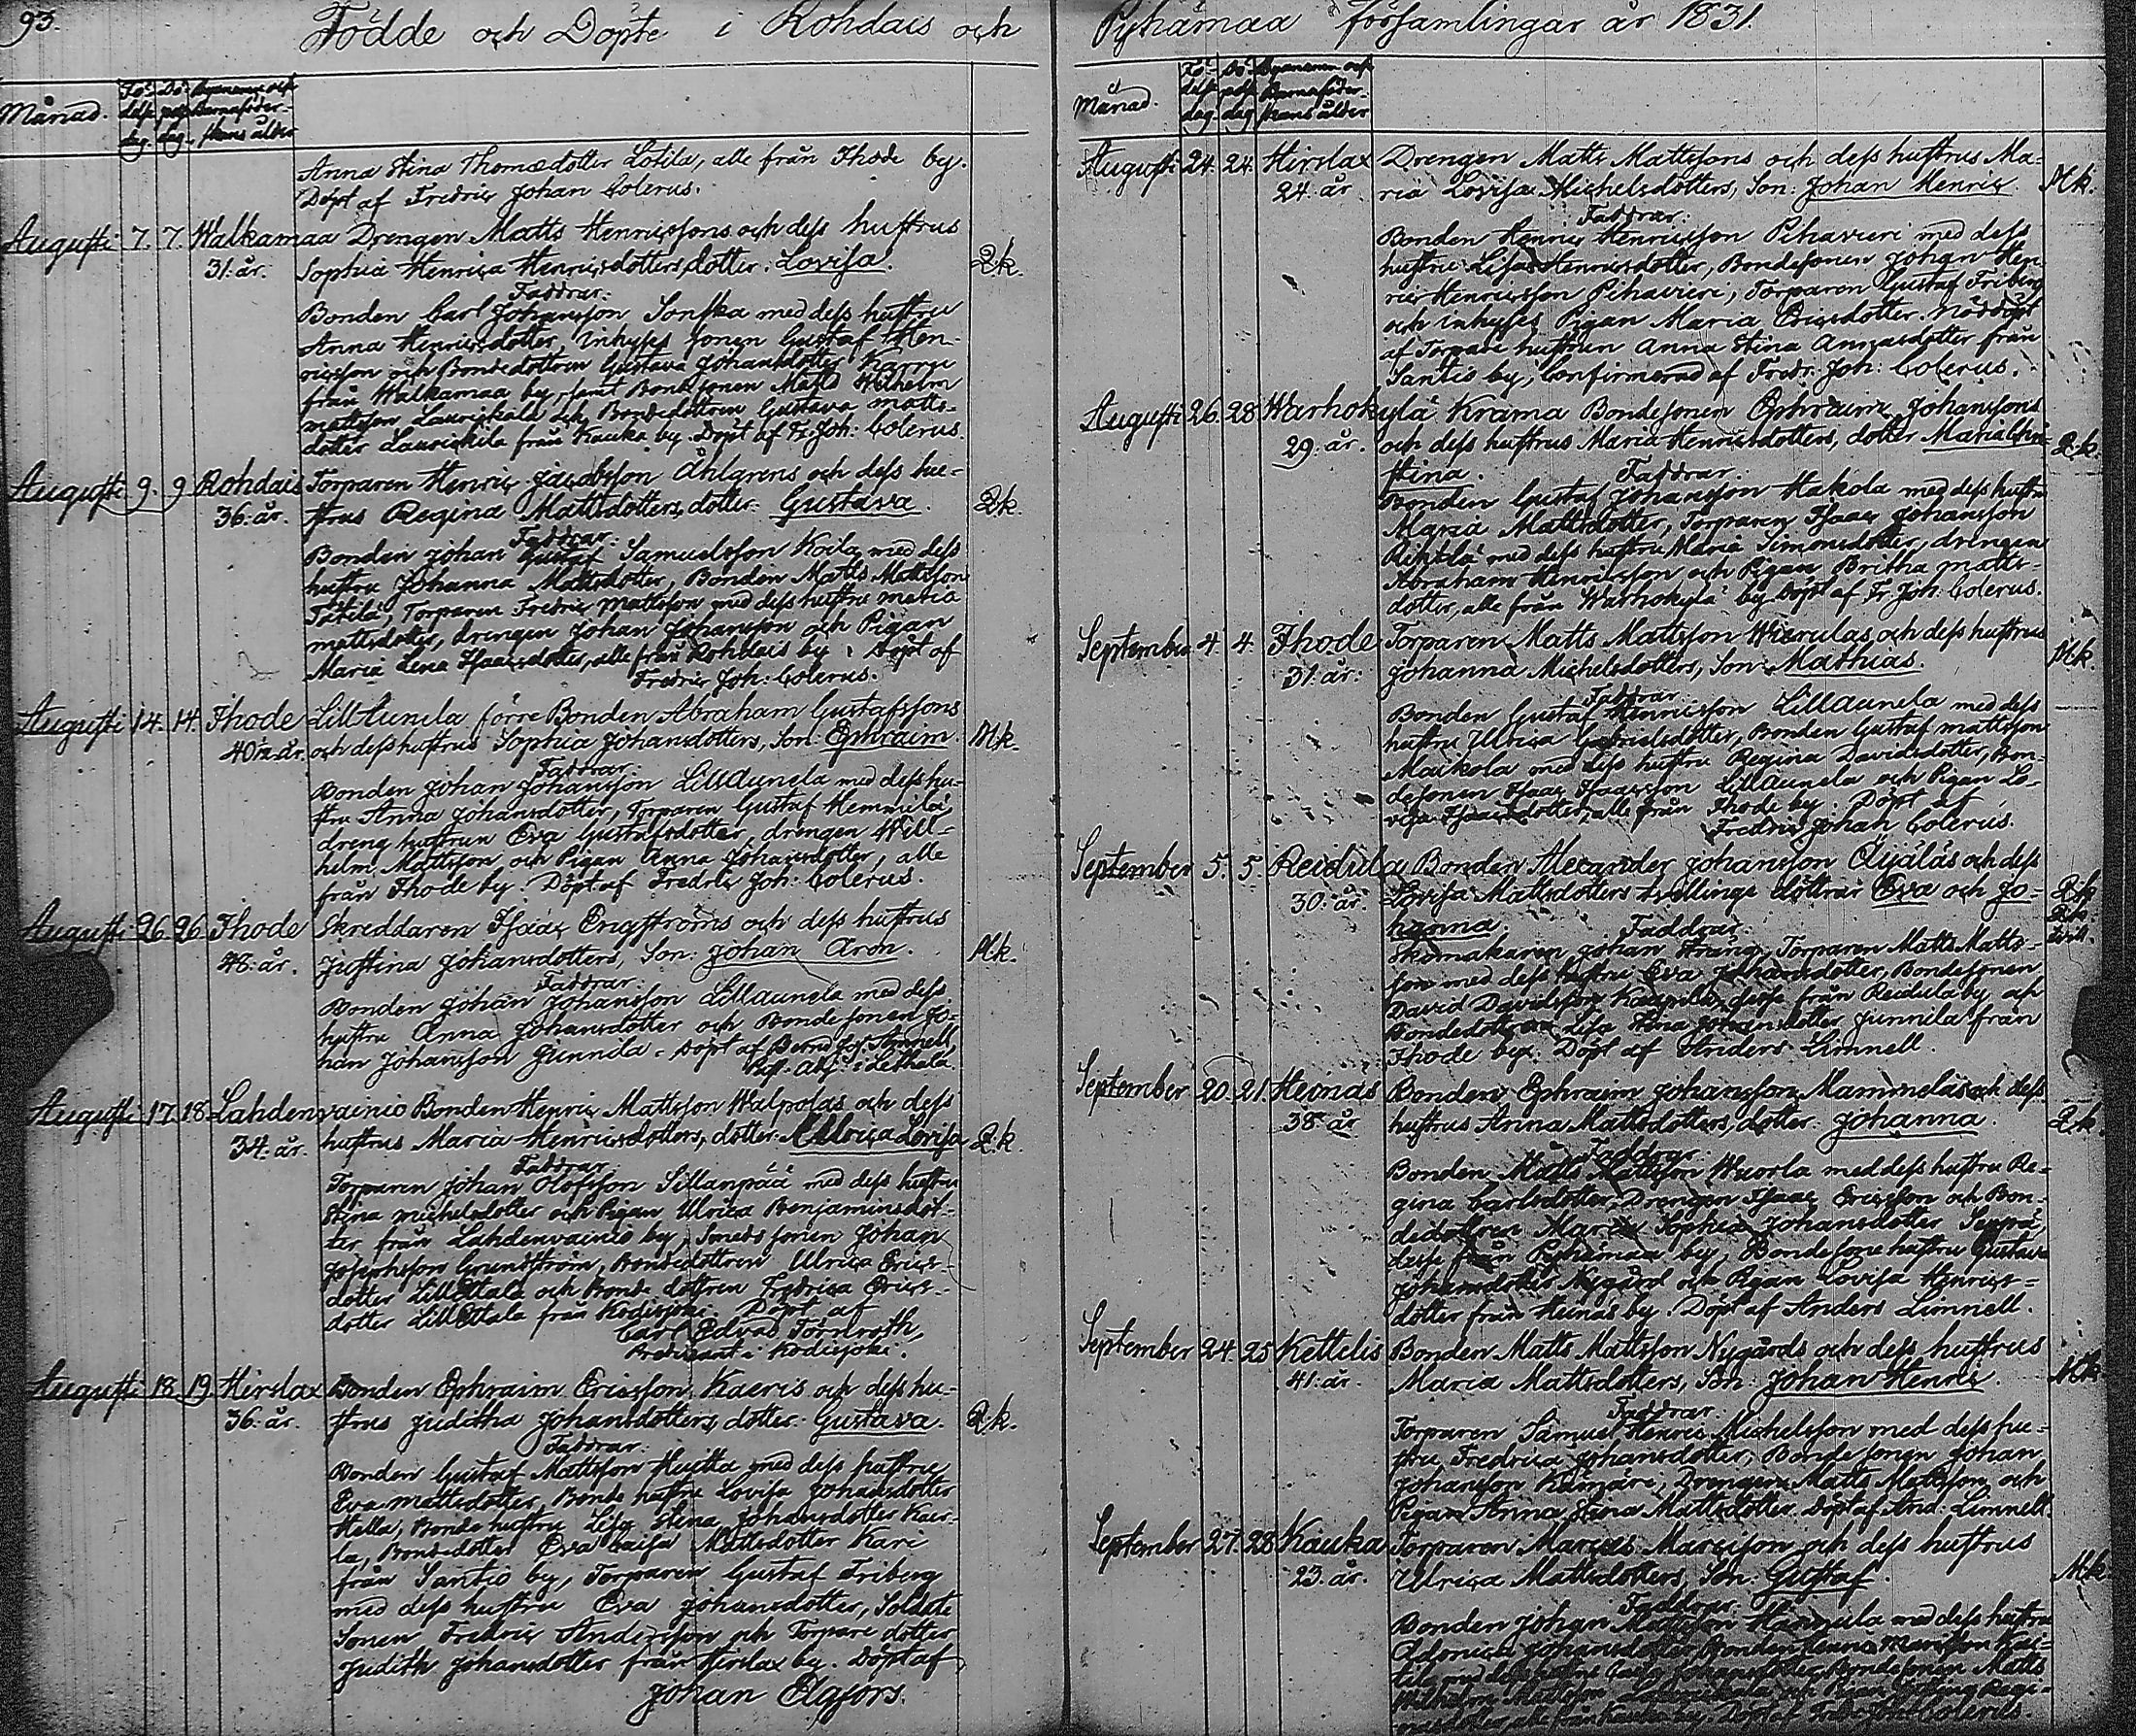 93.
Födde och Döpte i Rohdais och
Månad. Fö- Dö- Byanamn och
delse pelse Barnaföder-
dag. dag. skans ålder
Anna Stina Thomædotter Lotila, alle från Ihode by.
Döpt af Fredric Johan Colerus.
Augusti 7. 7. Walkamaa Drengen Matts Henricssons och dess hustrus
31. år. Sophia Henrica Henricsdotters, dotter: Lovisa. Qk.
Faddrar:
Bonden Carl Johansson Sonska med dess hustru
Anna Henricsdotter, Inhyses sonen Gustaf Hen-
ricsson och Bondedottren Gustava Johansdotter Karru
från Walkamaa by, samt Bondesonen Matts Wilhelm
Mattsson Laurickala och Bondedottren Gustava Matts-
dotter Laurickila från Kauka by. Döpt af Fr. Joh: Colerus.
Augusti 9. 9 Rohdais Torparen Henric Jacobsson Åhlgrens och dess hu-
36. år. strus Regina Mattsdotters, dotter: Gustava. Qk.
Faddrar:
Bonden Johan Gustaf Samuelsson Koila med dess
hustru Johanna Mattsdotter, Bonden Matts Mattsson
Tätilä, Torparen Fredric Mattsson med dess hustru Maria
Mattsdotter, drengen Johan Johansson och Pigan
Maria Lena Isaacsdotter, alle från Rohdais by. Döpt af
Fredric Joh: Colerus.
Augusti 14. 14. Ihode LillAunela förre Bonden Abraham Gustafssons
40 år. och dess hustrus Sophia Johansdotters, Son: Ephraim. Mk.
Faddrar:
Bonden Johan Johansson LillAunela med dess hu-
stru Anna Johansdotter, Torparen Gustaf Hemmilä
dreng hustrun Eva Gustafsdotter, drengen Will-
helm Mattsson och Pigan Anna Johansdotter, alle
från Ihode by. Döpt af Fredric Joh: Colerus.
Augusti 26. 26 Ihode Skreddaren Isaac Engströms och dess hustrus
48. år. Justina Johansdotters, Son: Johan Aron. Mk.
Faddrar:
Bonden Johan Johansson LillAunela med dess
hustru Anna Johansdotter och Bondesonen Jo-
han Johansson Junnila. Döpt af
i Lethala.
Augusti 17. 18. Lahdenvainio Bonden Henric Mattsson Walpolas och dess
34. år. hustrus Maria Henricsdotters, dotter: Ulrica Lovisa Qk.
Faddrar:
Torparen Johan Olofsson Sillanpää med dess hustru
Stina Michelsdotter och Pigan Ulrica Benjaminsdot-
ter från Lahdenvainio by, Smeds sonen Johan
Josephsson Grundström, Bondedottren Ulrica Erics-
dotter LillEttala och Bonde dottren Fredrica Erics-
dotter LillEttala från Kodisjoki. Döpt af
Carl Edvad Törnroth,
Predicant i Kodisjoki.
Augusti 18. 19. Hirslax Bonden Ephraim Ericsson Kaeris och dess hu-
36. år. strus Juditha Johansdotters, dotter: Gustava. Qk.
Faddrar:
Bonden Gustaf Mattsson Huitta med dess hustru
Eva Mattsdotter, Bonde hustru Lovisa Johansdotter
Hella, Bonde hustru Lisa Stina Johansdotter Kaer-
la, Bondedotter Eva Caisa Mattsdotter Kari
från Santio by, Torparen Gustaf Friberg
med dess hustru Eva Johansdotter, Soldate
Sonen Fredric Andersson och Torpare dotter
Judith Johansdotter från Hirslax by. Döpt af
Johan Elgfors.
Pyhämaa församlingar år 1831.
Månad. Fö- Dö- Byanamn och
delse pelse Barnaföder-
dag dag skans ålder
Augusti 24. 24. Hirslax Drengen Matts Mattssons och dess hustrus Ma-
24. år. ria Lovisa Michelsdotters, Son: Johan Henric. Mk.
Faddrar:
Bonden Henric Henricsson Pihavieri med dess
hustru Lisa Henricsdotter, Bondesonen Johan Hen-
ric Henricsson Pihavieri, Torparen Gustaf Friberg
och inhyses Pigan Maria Ericsdotter. Nöddöpt
af Torpare hustrun Anna Stina Anzasdotter från
Santio by, Confirmerad af Fredr. Joh: Colerus.
Augusti 26. 28 Warhokylä Krama Bondesonen Ephraim Johanssons
29. år. och dess hustrus Maria Henricsdotters, dotter Maria Chri- Qk.
stina. Faddrar:
Bonden Gustaf Johansson Hakola med dess hustru
Maria Mattsdotter, Torparen Isaac Johansson
med dess hustru Maria Simonsdotter, drengen
Abraham Henricsson och Pigan Britha Matts-
dotter, alle från Warhokylä by. Döpt af Fr. Joh: Colerus.
September 4. 4. Ihode Torparen Matts Mattsson Wierulas och dess hustrus
31. år. Johanna Michelsdotters, Son: Mathias. Mk.
Faddrar:
Bonden Gustaf Henricsson LillAunela med dess
hustru Ulrica Gabrielsdotter, Bonden Gustaf Mattsson
Maikola med dess hustru Regina Davidsdotter, Bon-
desonen Isaac Isaacsson LillAunela och Pigan Lo-
visa Isaacsdotter, alle från Ihode by. Döpt af
Fredric Johan Colerus.
September 5. 5. Reidula Bonden Alexander Johansson Äijäläs och dess
30. år. Lovisa Mattsdotters tvillinge döttrar Eva och Jo- Qk
hanna. Faddrar: Qk tvill.
Skomakaren Johan Sträng, Torparen Matts Matts-
son med dess hustru Eva Johansdotter, Bondesonen
David Davidsson Kaunila, desse från Reidula by och
Bondedottren Lisa Stina Johansdotter Junnila från
Ihode by. Döpt af Anders Limnell.
September 20. 21. Heinas Bonden Ephraim Johansson Mammelas och dess
38. år hustrus Anna Mattsdotters, dotter: Johanna. Qk.
Faddrar:
Bonden Matts Mattsson Wuorla med dess hustru Re-
gina Carlsdotter, Drengen Isaac Ericsson och Bon-
dedottren Maria Sophia Johansdotter Seppä,
desse från Pyhämaa by, Bondesone hustru Gustava
Johansdotter Nygård och Pigan Lovisa Henrics-
dotter från Heinas by. Döpt af Anders Limnell.
September 24. 25 Kettelis Bonden Matts Mattsson Nygårds och dess hustrus
41. år. Maria Mattsdotters, Son: Johan Henric. Mk
Faddrar:
Torparen Samuel Henric Michelsson med dess hu-
stru Fredrica Johansdotter, Bondesonen Johan
Johansson Kämäri, Drengen Matts Mattsson och
Pigan Anna Stina Mattsdotter. Döpt af And. Limnell.
September 27. 28 Kauka Torparen Marcus Marcisson och dess hustrus
23. år. Ulrica Mattsdotters, Son: Gustaf. Mk
Faddrar:
Bonden Johan Mattsson Hannula med dess hustru
Johansdotter, Bonden
med dess hustru Johansdotter, Bondesonen Matts
Wilhelm Mattsson och Pigan
alle från Kauka by. Döpt af Fredr. Joh: Colerus.